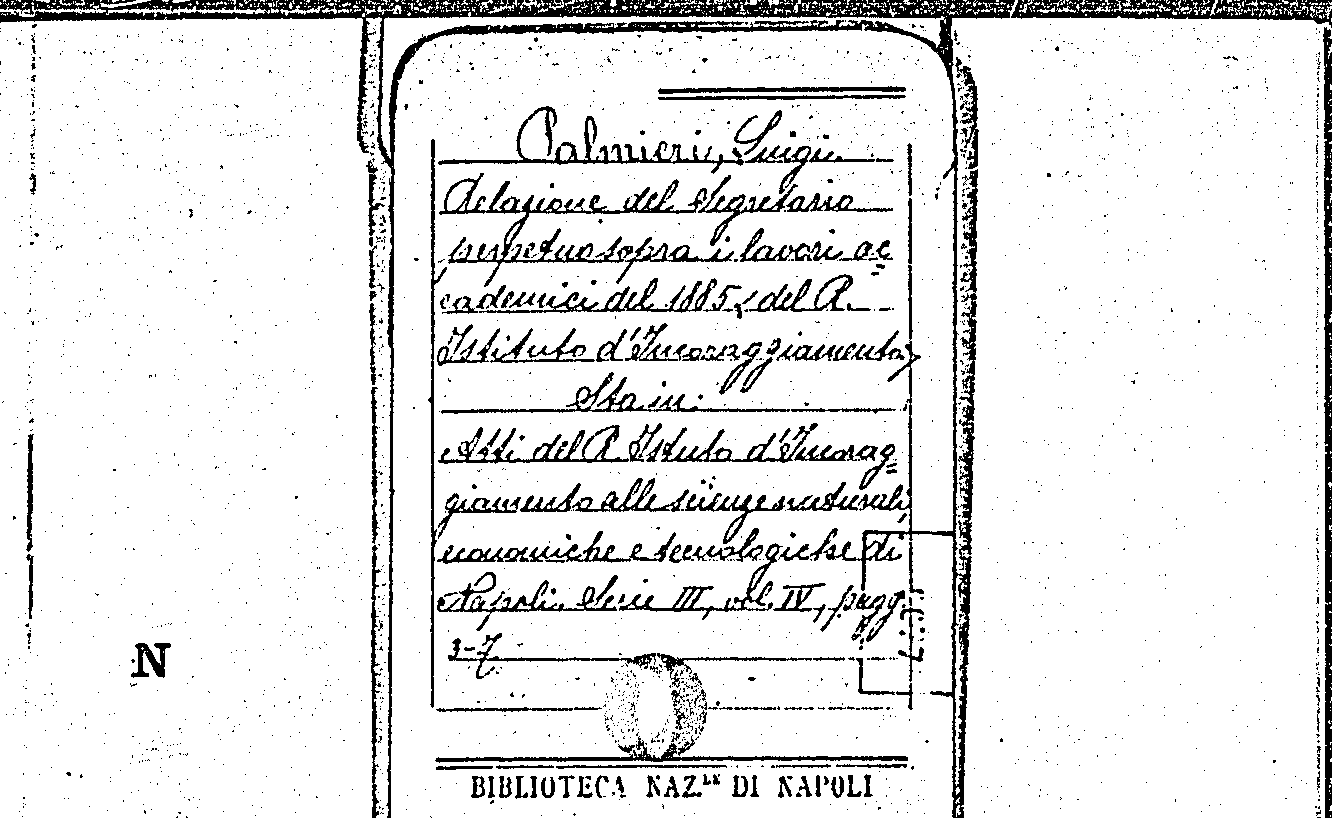 Palmieri, Luigi.
Relazione del Segretario
perpetuo sopra i lavori ac=
cademici del 1885, del R.
Istituto d'Incoraggiamento,
Sta in:
Atti del R. Istituto d'Incorag=
giamento alle scienze naturali,
economiche e tecnologiche di
Napoli. Serie III, vol. IV, pagg.
3-7
N
BIBLIOTECA NAZ.LE DI NAPOLI